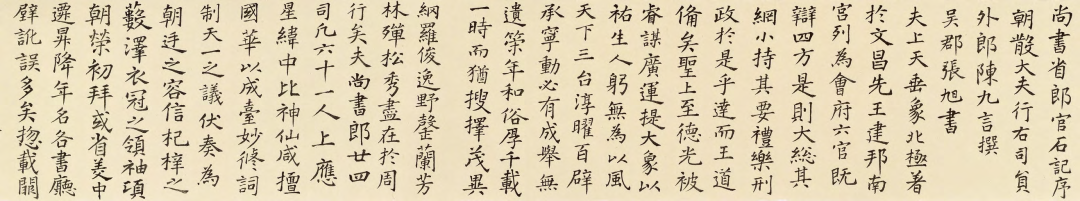 尚書省郎官石記序
朝散大夫行右司貟
外郎陳九言撰
吳郡張旭書
夫上天垂象北極著
於文昌先王建邦南
宮列為會府六官既
辯四方是則大総其
綱小持其要禮樂刑
政於是乎達而王道
俻矣聖上至德光被
睿謀廣運提大象以
祐生人躬無為以風
天下三台淳曜百辟
承寧動必有成舉無
遺策年和俗厚千載
一時而猶搜擇茂異
網羅俊逸野罄蘭芳
林殫松秀盡在於周
行矣夫尚書郎廿四
司凡六十一人上應
星緯中比神仙咸擅
國華以成臺妙修詞
制天一之議伏奏為
朝廷之容信杞梓之
藪澤衣冠之領袖項
朝榮初拜或省美中
遷昇降年名各書廳
壁訛誤多矣惣載闕